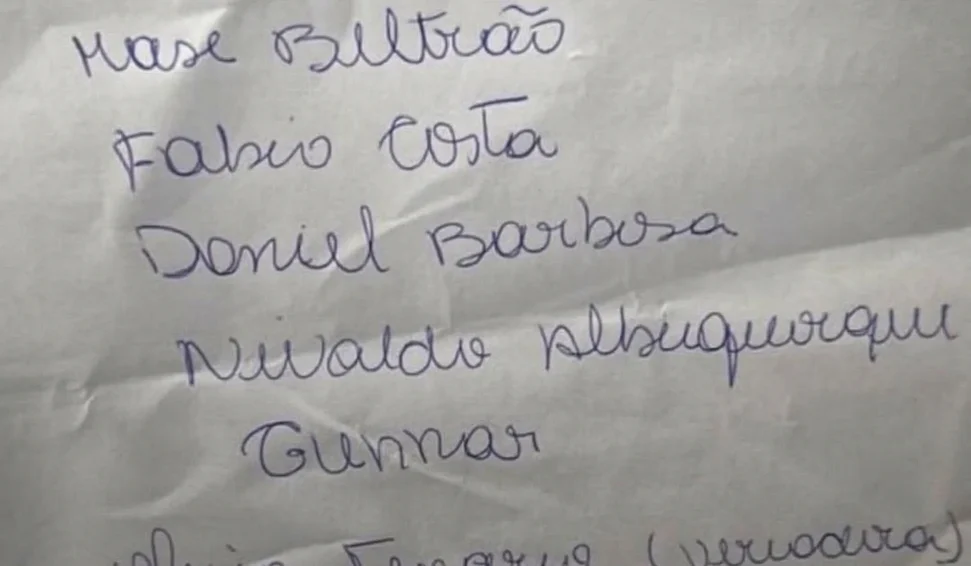 Marx Beltrão
Fabio Costa
Daniel Barbosa
Nivaldo Albuquerque
Gunnar
(vereadora)